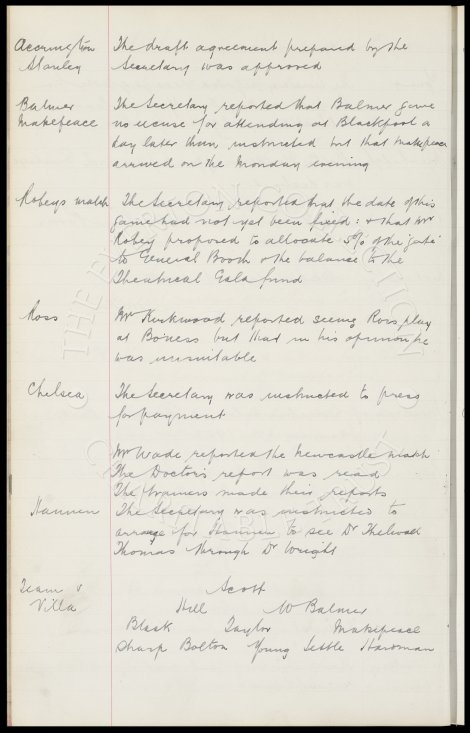 Accrington The draft agreement prepared by the
Stanley Secretary was approved
Balmer The Secretary reported that Balmer gave
Makepeace no excuse for attending at Blackpool a
day later than instructed but that Makepeace
arrived on the Monday evening
Robeys match The Secretary reported that the date of this
game had not yet been fixed: & that Mr
Robey proposed to allocate 5% of the gate
to General Booth & the balance to the
Theatrical Gala fund
Ross Mr Kirkwood reported seeing Ross play
at Boness but that in his opinion he
was unsuitable
Chelsea The Secretary was instructed to press
for payment
Mr Wade reported the Newcastle match
The Doctors report was read
The trainers made their reports
Hannen The Secretary was instructed to
arrange for Hannen to see Dr Thelwall
Thomas through Dr Wright
Team v Scott
Villa Hill W Balmer
Black Taylor Makepeace
Sharp Bolton Young Settle Hardman